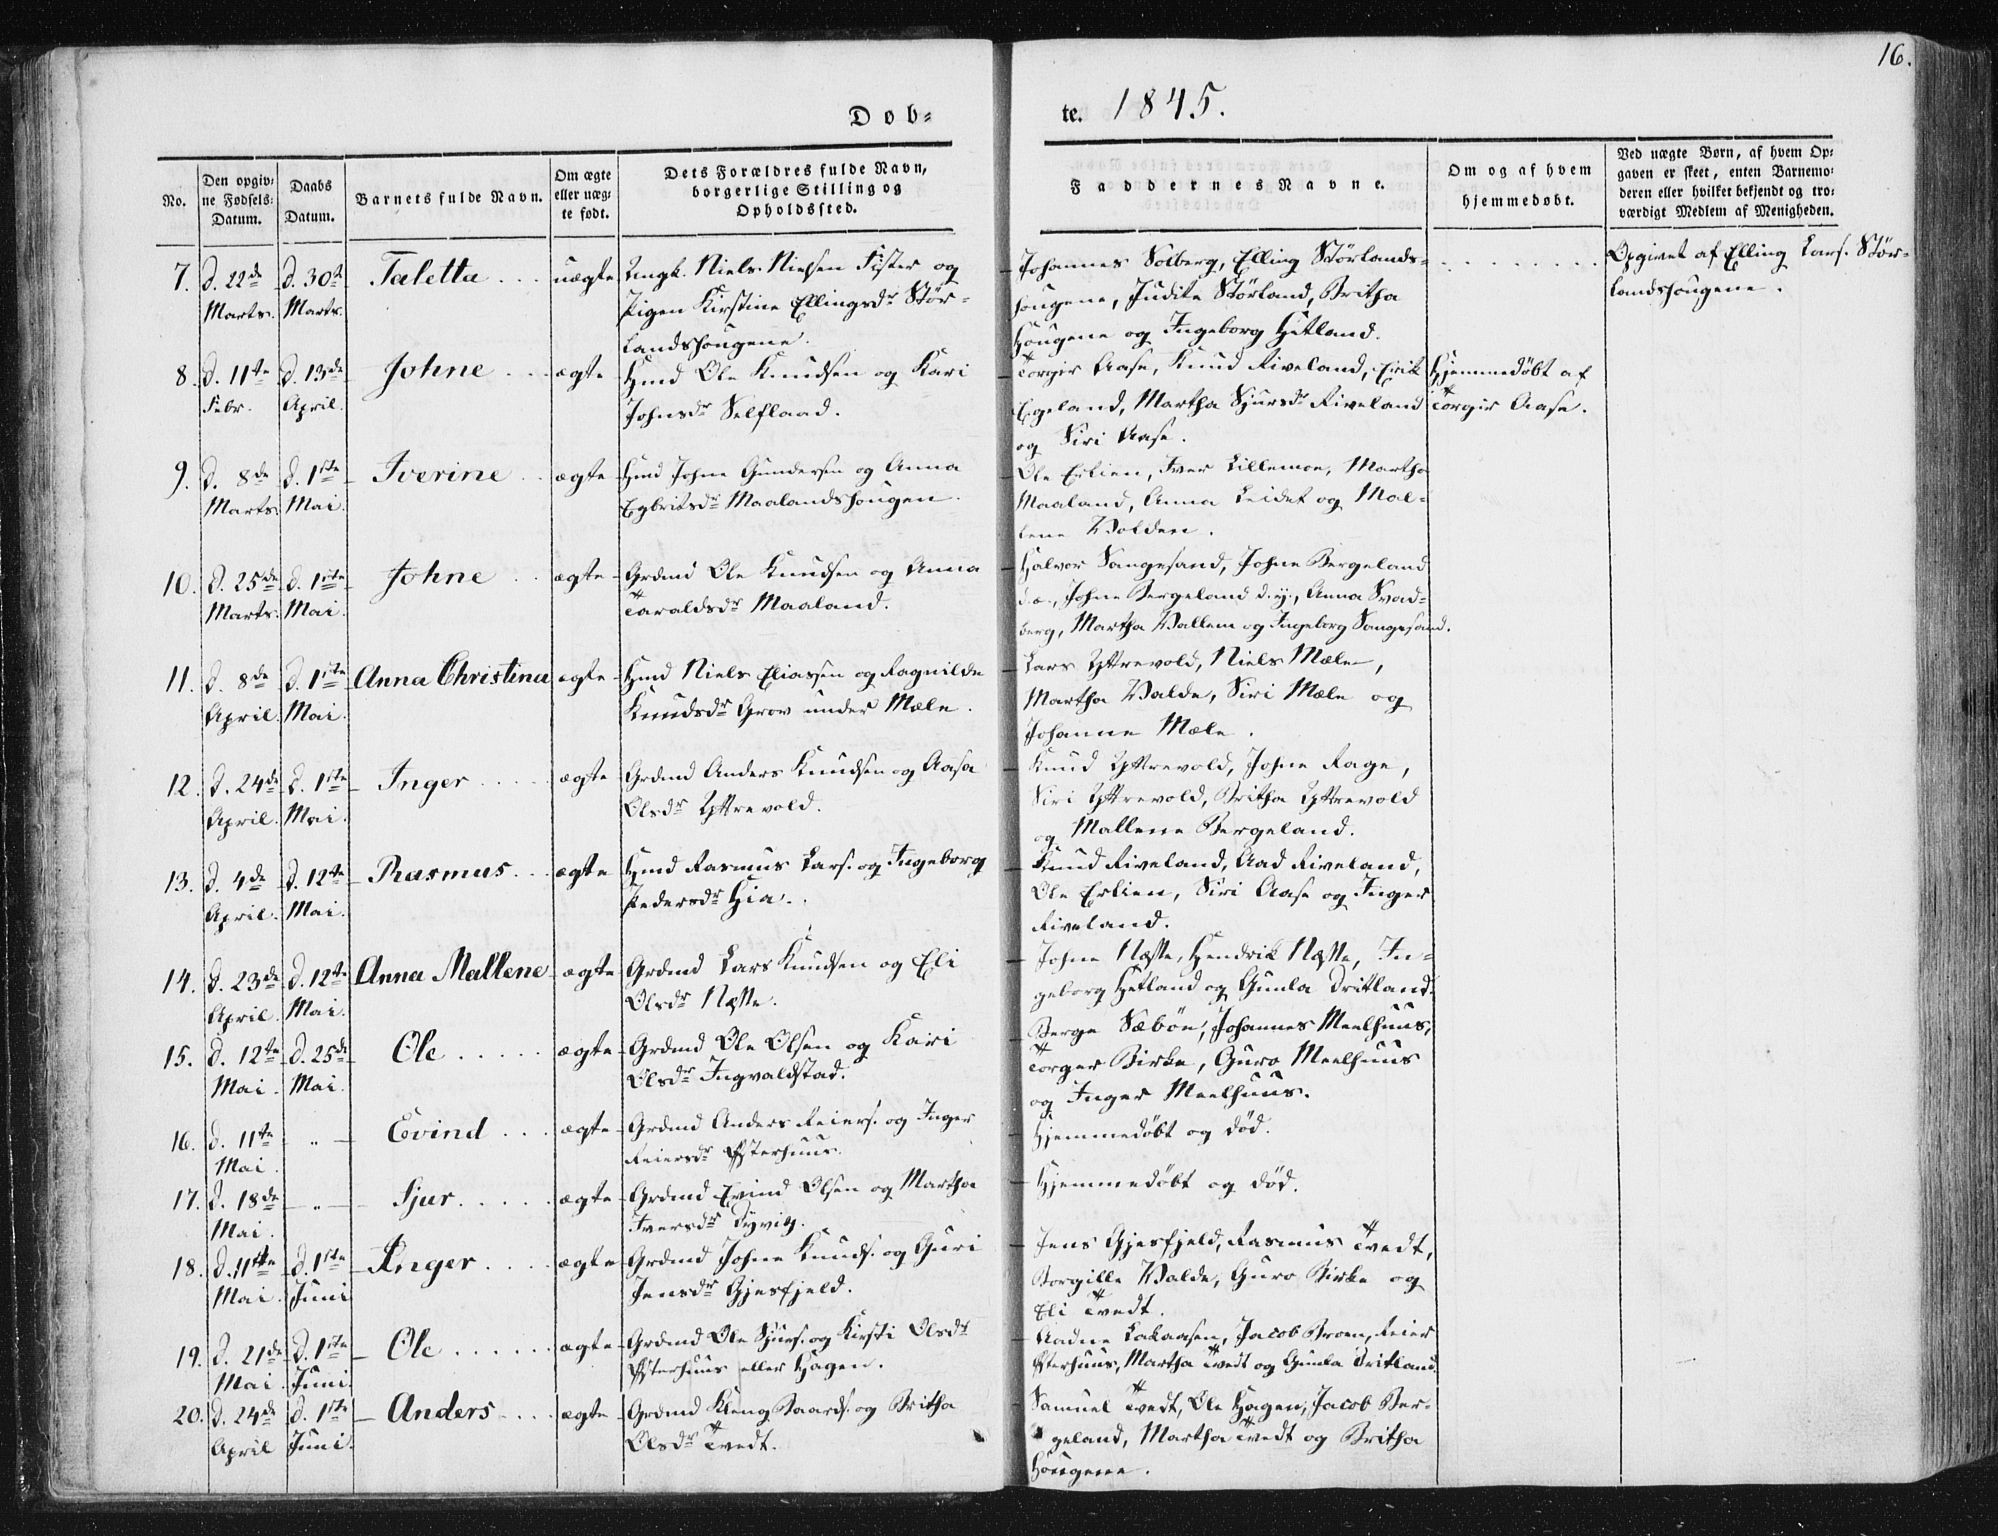 16.
Døb-
te. 1845.
No.
Den opgiv-
ne Fødsels-
Datum.
Daabs
Datum.
Barnets fulde Navn.
Om ægte
eller uæg-
te født.
Dets Forældres fulde Navn,
borgerlige Stilling og
Opholdssted.
Faddernes Navne.
Om og af hvem
hjemmedøbt.
Ved uægte Børn, af hvem Op-
gaven er skeet, enten Barnemo-
deren eller hvilket bekjendt og tro-
værdigt Medlem af Menigheden.
7. d. 22de Marts. d. 30te Marts. Taletta . . . uægte
Ungk. Niels Nielsen Fister og
Pigen Kirstine Ellingsdr Stør-
landshougene.
Johannes Solberg, Elling Størlands-
hougene, Judite Størland, Britha
Hougene og Ingeborg Hetland.
Opgivet af Elling Lars. Stør-
landshougene.
8. d. 11te Febr. d. 13de April. Johne . . ægte
Hmd Ole Knudsen og Kari
Johnsdr Selflaad.
Torgir Aase, Knud Riveland, Erik
Egeland, Martha Sjursdr Riveland
og Siri Aase.
Hjemmedøbt af
Torgir Aase.
9. d. 8de Marts. d. 1ste Mai. Iverine . . ægte
Hmd Johne Gundersen og Anna
Egbritsdr Maalandshougen.
Ole Erlien, Iver Lillemoe, Martha
Maaland, Anna Leidet og Mal-
lene Volden.
10. d. 25de Marts. d. 1ste Mai. Johne . . ægte
Grdmd Ole Knudsen og Anna
Taraldsdr Maaland.
Halvor Sangesand, Johne Bergeland
d. æ., Johne Bergeland d. y., Anna Svad-
berg, Martha Vallem og Ingeborg Sangesand.
11. d. 8de April. d. 1ste Mai. Anna Christina ægte
Hmd Niels Eliassen og Ragnilde
Knudsdr Grov under Mæle.
Lars Yttrevold, Niels Mæle,
Martha Valde, Siri Mæle og
Johanne Mæle.
12. d. 24de April. d. 1ste Mai. Inger . . . . ægte
Grdmd Anders Knudsen og Aasa
Olsdr Yttrevold.
Knud Yttrevold, Johne Rage,
Siri Yttrevold, Britha Yttrevold
og Mallene Bergeland.
13. d. 4de April. d. 12te Mai. Rasmus . . . ægte
Hmd Rasmus Lars. og Ingeborg
Pedersdr Hia.
Knud Riveland, Aad Riveland,
Ole Erlien, Siri Aase og Inger
Riveland.
14. d. 23de April. d. 12te Mai. Anna Mallene ægte
Grdmd Lars Knudsen og Eli
Olsdr Næsse.
Johne Næsse, Hendrik Næsse, In-
geborg Hetland og Gunla Dritland.
15. d. 12te Mai. d. 25de Mai. Ole . . . . . ægte
Grdmd Ole Olsen og Kari
Olsdr Ingvaldstad.
Berge Sæbøe, Johannes Meelhuus,
Torger Birke, Guro Meelhuus
og Inger Meelhuus.
16. d. 11te Mai. " Eivind . . . ægte
Grdmd Anders Reiers. og Inger
Reiersdr Østerhuus.
Hjemmedøbt og død.
17. d. 18de Mai. " Sjur . . . . . ægte
Grdmd Eivind Olsen og Martha
Iversdr Dyvig.
Hjemmedøbt og død.
18. d. 11te Mai. d. 1ste Juni Inger . . . . ægte
Grdmd Johne Knuds. og Guri
Jensdr Gjesfjeld.
Jens Gjesfjeld, Rasmus Tvedt,
Borgille Valde, Guro Birke og
Eli Tvedt.
19. d. 21de Mai d. 1ste Juni. Ole . . . . . . ægte
Grdmd Ole Sjurs. og Kirsti Olsdr
Østerhuus eller Hagen.
Aadne Lakaasen, Jacob Broen, Reier
Østerhuus, Martha Tvedt og Gunla Dritland.
20. d. 24de April d. 1ste Juni. Anders . . . ægte
Grdmd Kleng Baards. og Britha
Olsdr Tvedt.
Samuel Tvedt, Ole Hagen, Jacob Ber-
geland, Martha Tvedt og Britha
Hougene.